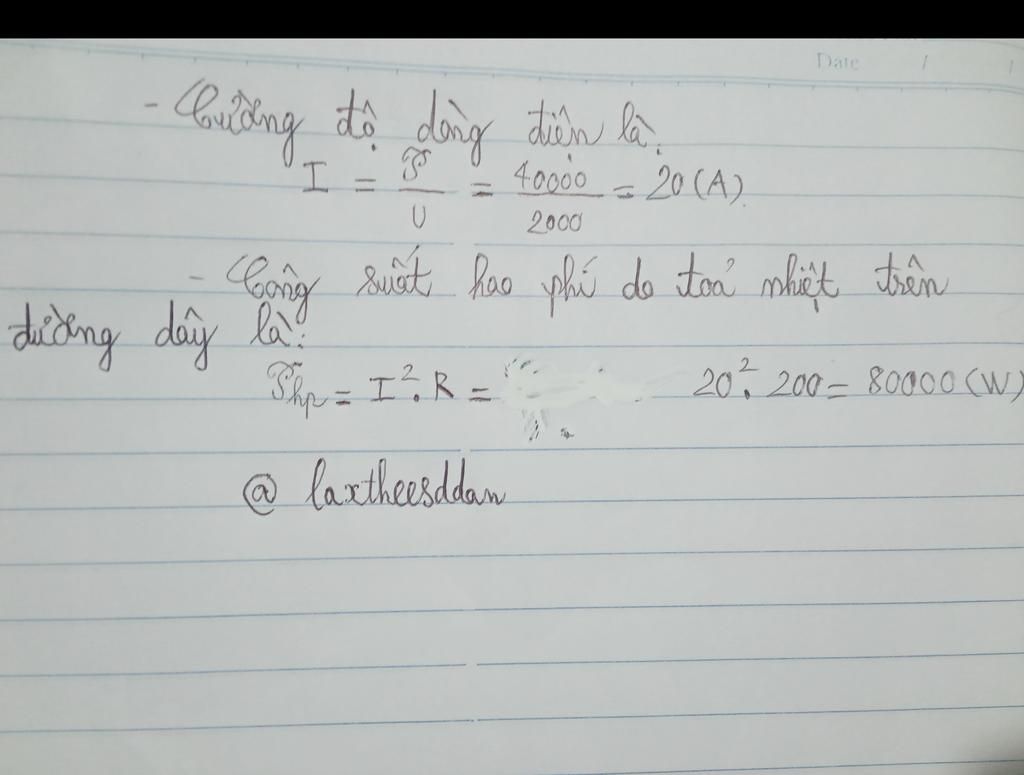 Date / /
- Cường độ dòng điện là:
I = P/U = 40000/2000 = 20 (A).
- Công suất hao phí do toả nhiệt trên
đường dây là:
Php = I². R = 20². 200 = 80000 (W)
@ laxtheesddan